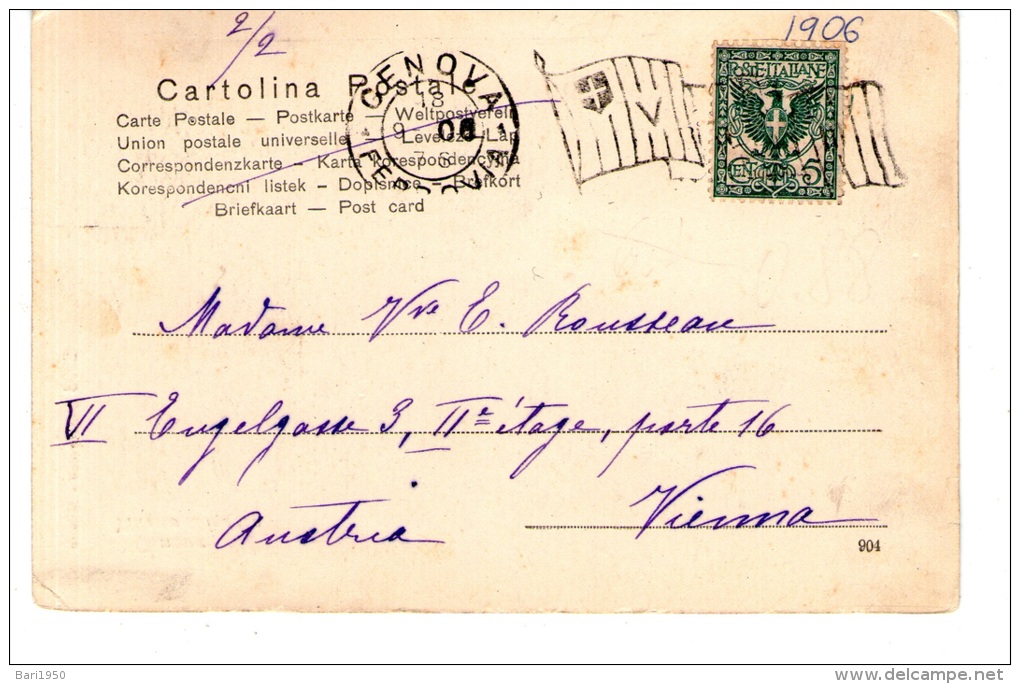 2/2
1906
Cartolina Postale
Carte Postale — Postkarte — Weltpostverein
Union postale universelle — Levelezö-Lap
Correspondenzkarte — Karta korespondencyjna
Korespondencni listek — Dopisnice — Brefkort
Briefkaart — Post card
GENOVA
18
9 06
FERROVIA
POSTE·ITALIANE
CEN 5
Madame Vve E. Rousseau
VI Engelgasse 3, IIe étage, porte 16
Austria
Vienna
904
Bari1950
www.delcampe.net